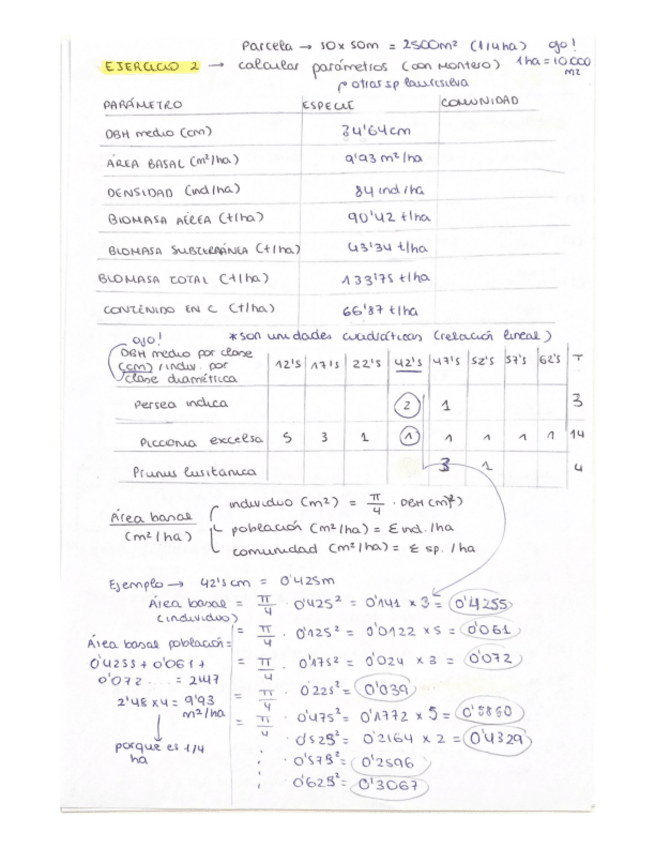 Parcela → 50 x 50m = 2500m² (1/4 ha) ojo!
EJERCICIO 2 → calcular parámetros (con Montero) 1 ha = 10.000 m2
otras sp laurisilva
PARÁMETRO ESPECIE COMUNIDAD
DBH medio (cm) 34'64cm
ÁREA BASAL (m²/ha) 9'93 m²/ha
DENSIDAD (ind/ha) 84 ind/ha
BIOMASA AÉREA (t/ha) 90'42 t/ha
BIOMASA SUBTERRÁNEA (t/ha) 43'34 t/ha
BIOMASA TOTAL (t/ha) 133'75 t/ha
CONTENIDO EN C (t/ha) 66'87 t/ha
ojo! *son unidades cuadráticas (relación lineal)
DBH medio por clase (cm) / indiv. por clase diamétrica 12'5 17'5 22'5 42'5 47'5 52'5 57'5 62'5 T
Persea indica 2 1 3
Picconia excelsa 5 3 1 1 1 1 1 1 14
Prunus lusitanica 3 1 4
Área basal (m²/ha)
individuo (m²) = π/4 · DBH (m²)
población (m²/ha) = Σ ind./ha
comunidad (m²/ha) = Σ sp./ha
Ejemplo → 42'5 cm = 0'425m
Área basal (individuo) = π/4 · 0'425² = 0'141 x 3 = 0'4255
= π/4 · 0'125² = 0'0122 x 5 = 0'061
Área basal población =
0'4255 + 0'061 +
0'072 .... = 2'47
= π/4 · 0'175² = 0'024 x 3 = 0'072
= π/4 · 0'225² = 0'039
2'48 x 4 = 9'93 m²/ha
= π/4 · 0'475² = 0'1772 x 5 = 0'8860
porque es 1/4 ha
· 0'525² = 0'2164 x 2 = 0'4329
· 0'575² = 0'2596
· 0'625² = 0'3067